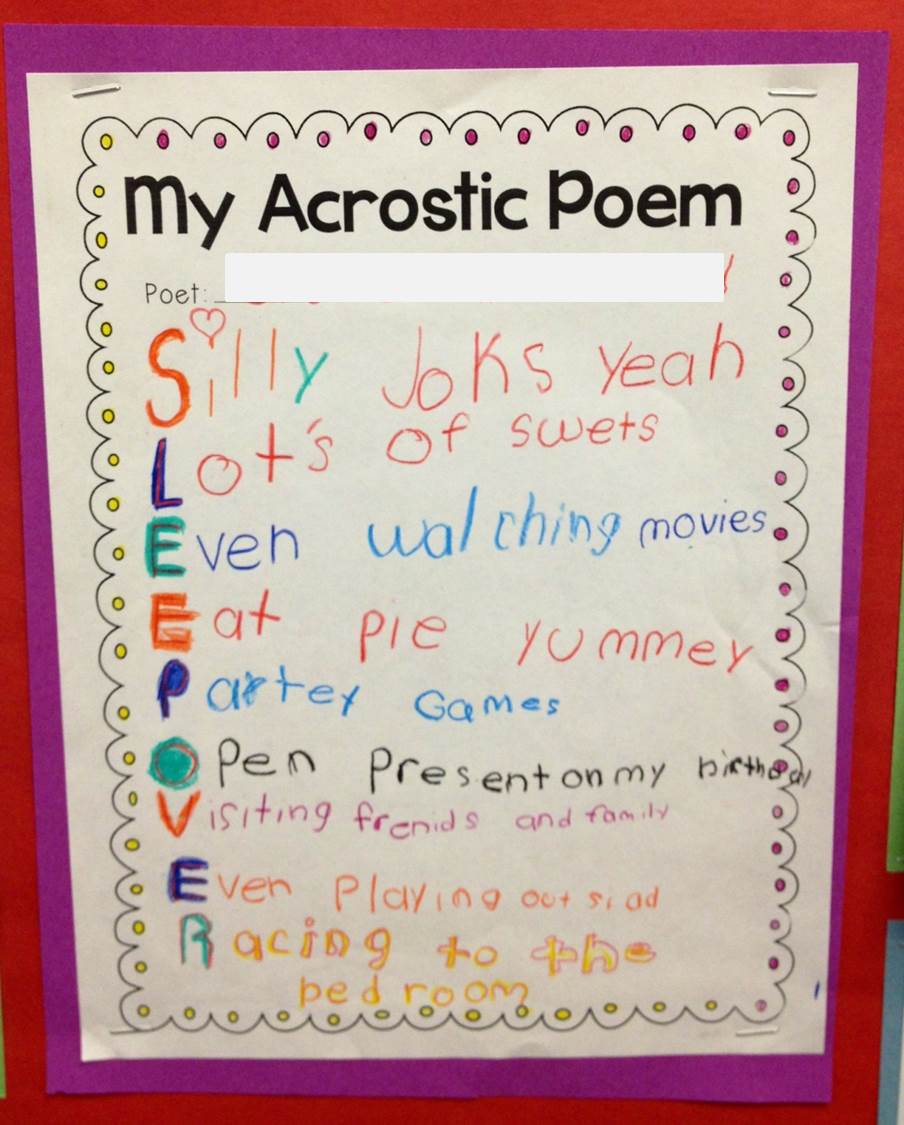 My Acrostic Poem
Poet:
Silly Joks Yeah
Lot's Of swets
Even walching movies
Eat Pie yummey
Partey Games
Open Present on my birthday
Visiting frenids and family
Even Playing out siad
Racing to the
bedroom